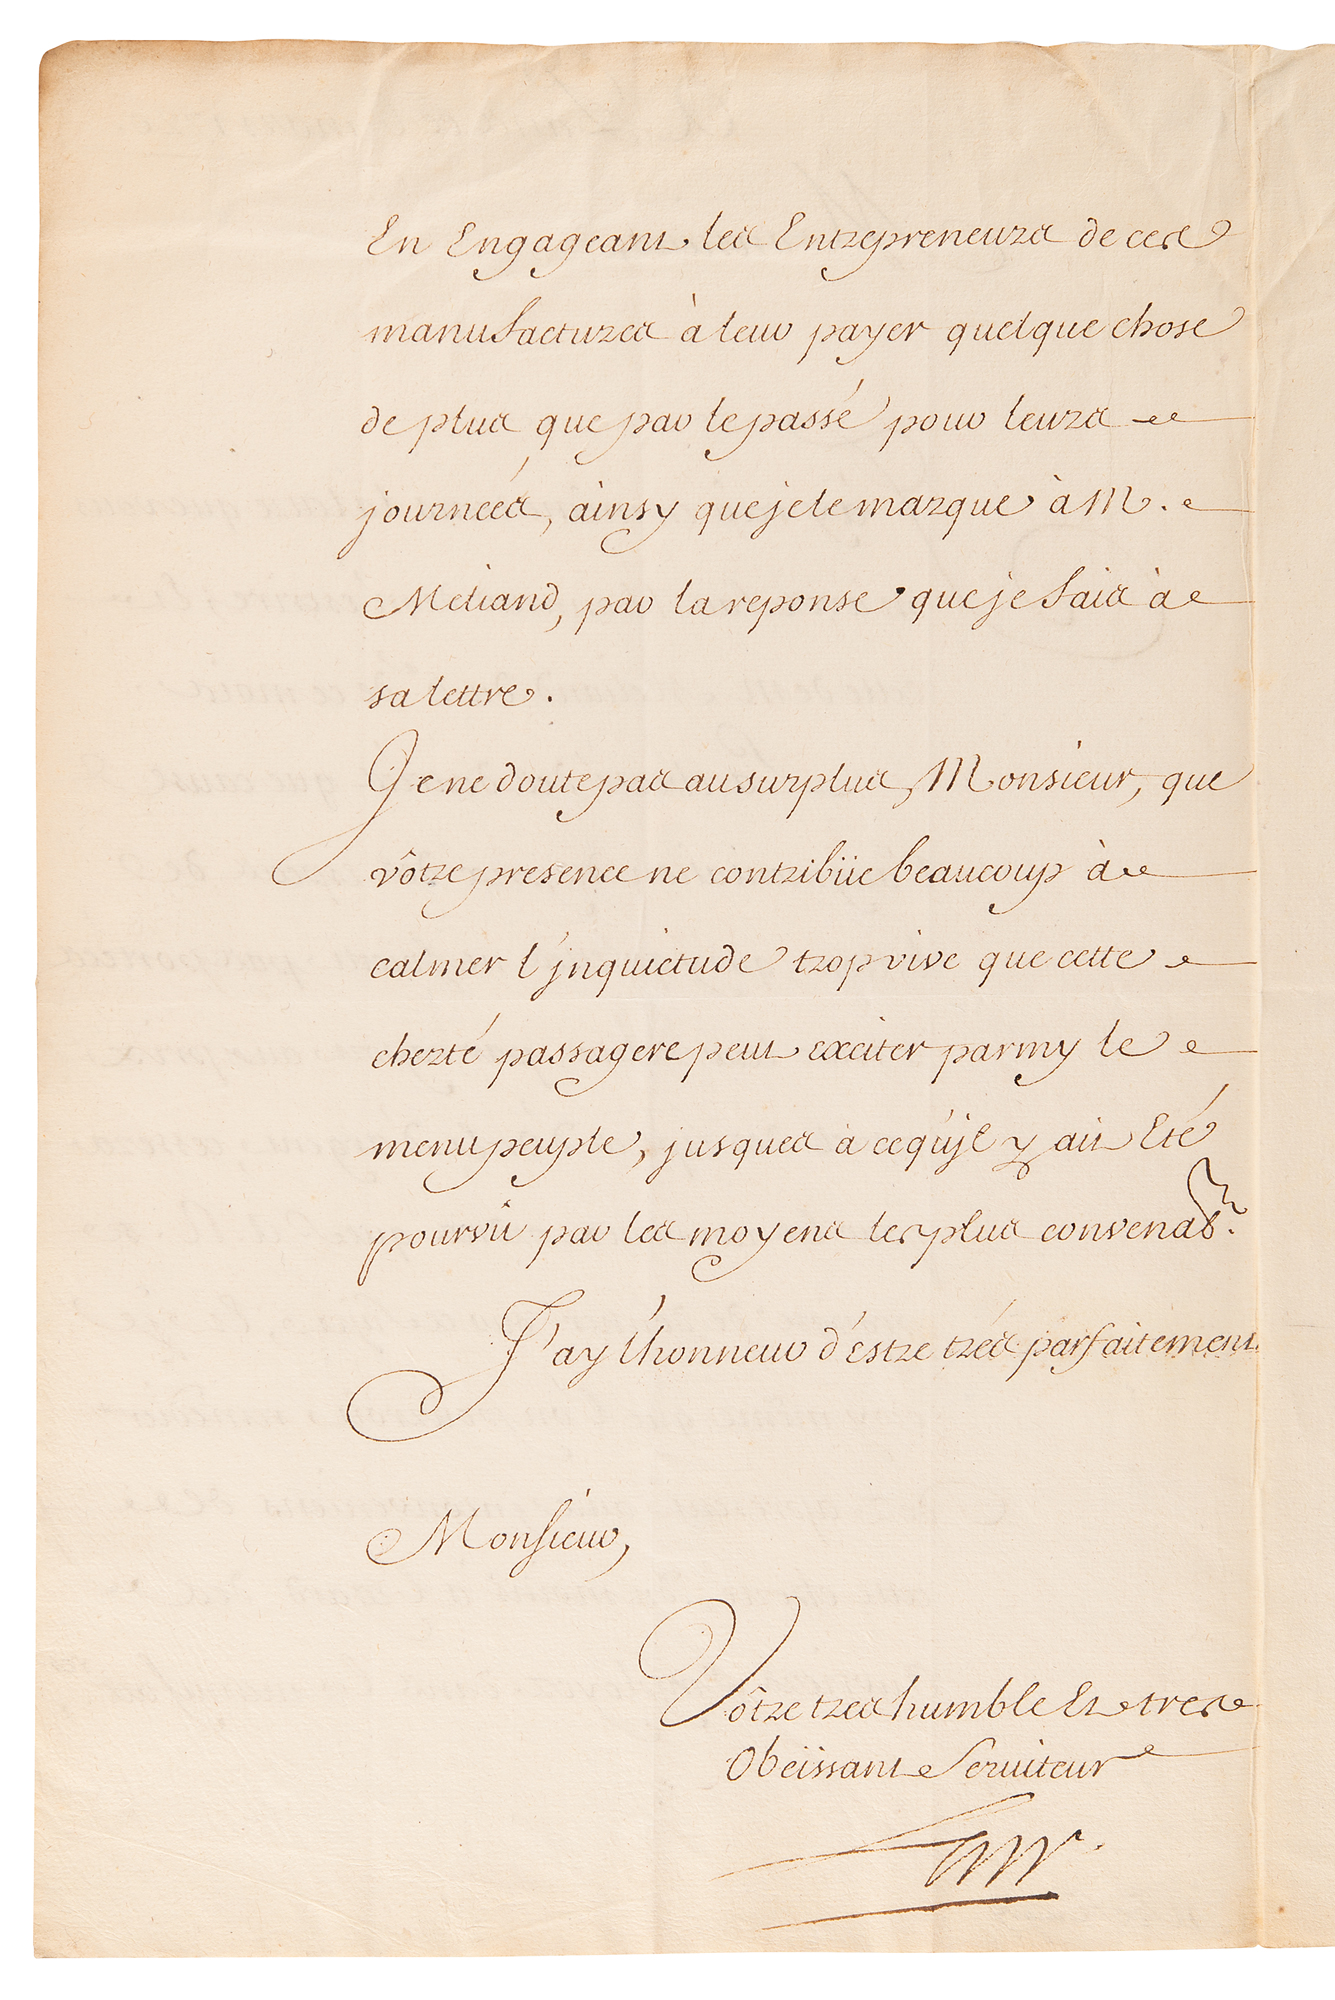 En Engageant les Entrepreneurs de ces
manufactures à leur payer quelque chose
de plus que par le passé pour leurs
journeés, ainsy que je le marque à M.
Meliand, par la reponse que je fais à
sa lettre.
Je ne doute pas au surplus, Monsieur, que
vôtre presence ne contribüe beaucoup à
calmer l'jnquietude trop vive que cette
cherté passagere peut exciter parmy le
menu peuple, jusques à ce qu'jl y ait Eté
pourvû par les moyens les plus convenab.
J'ay l'honneur d'estre trés parfaitement
Monsieur,
Vôtre tres humble Et tres
Obeïssant Seruiteur